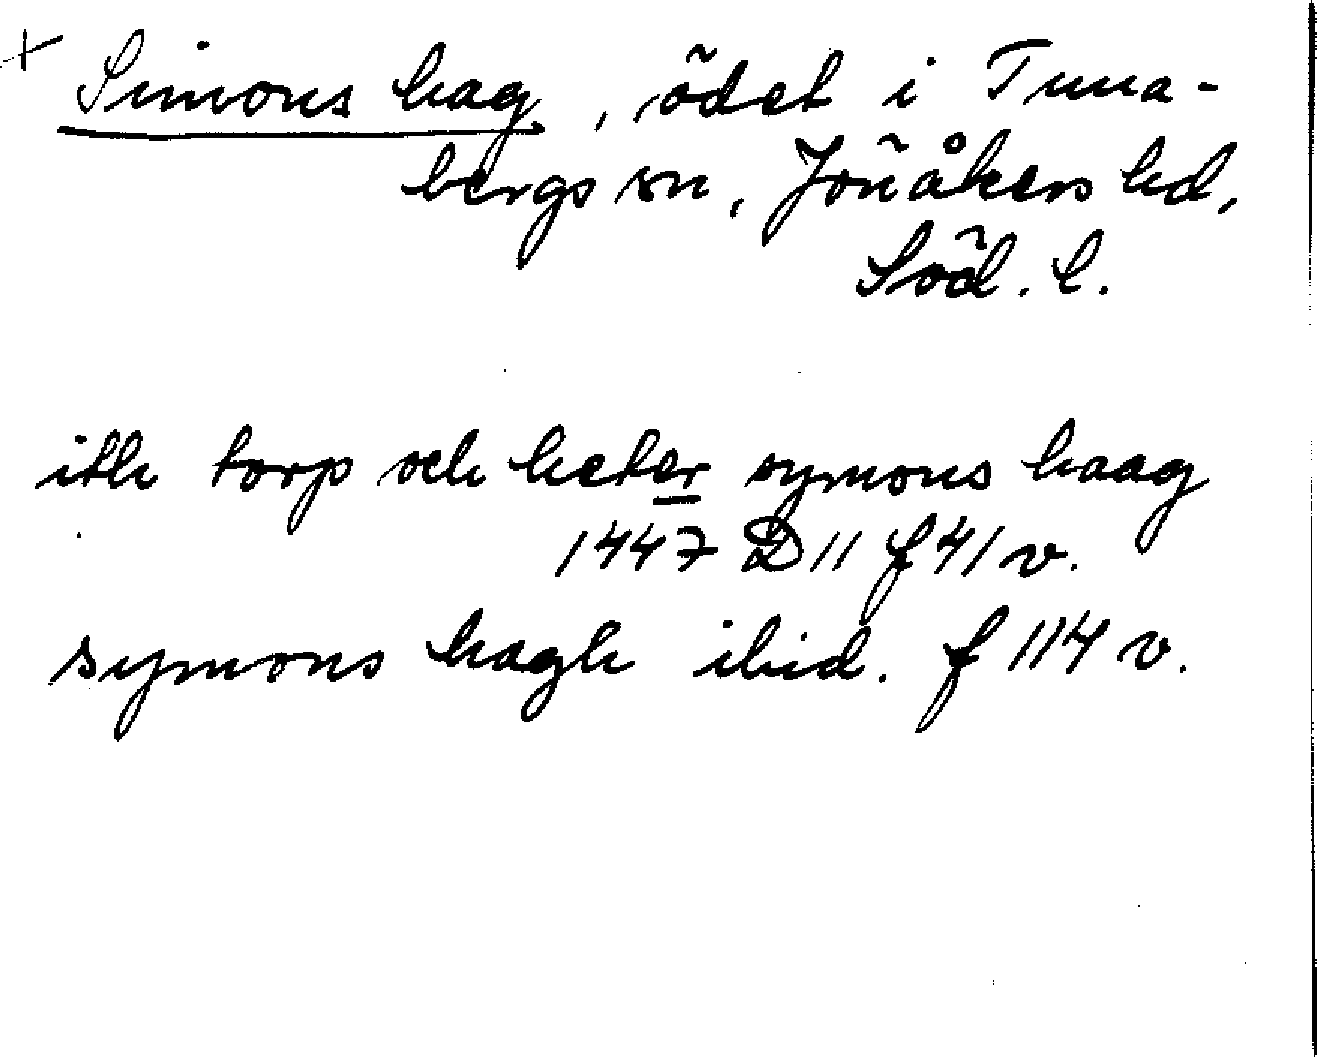 + Simons hag, ödet i Tuna-
bergs sn, Jönåkers hd,
Söd. l.
ith torp och heter symons haag
1447 D 11 f 41 v.
symons hagh ibid. f 114 v.